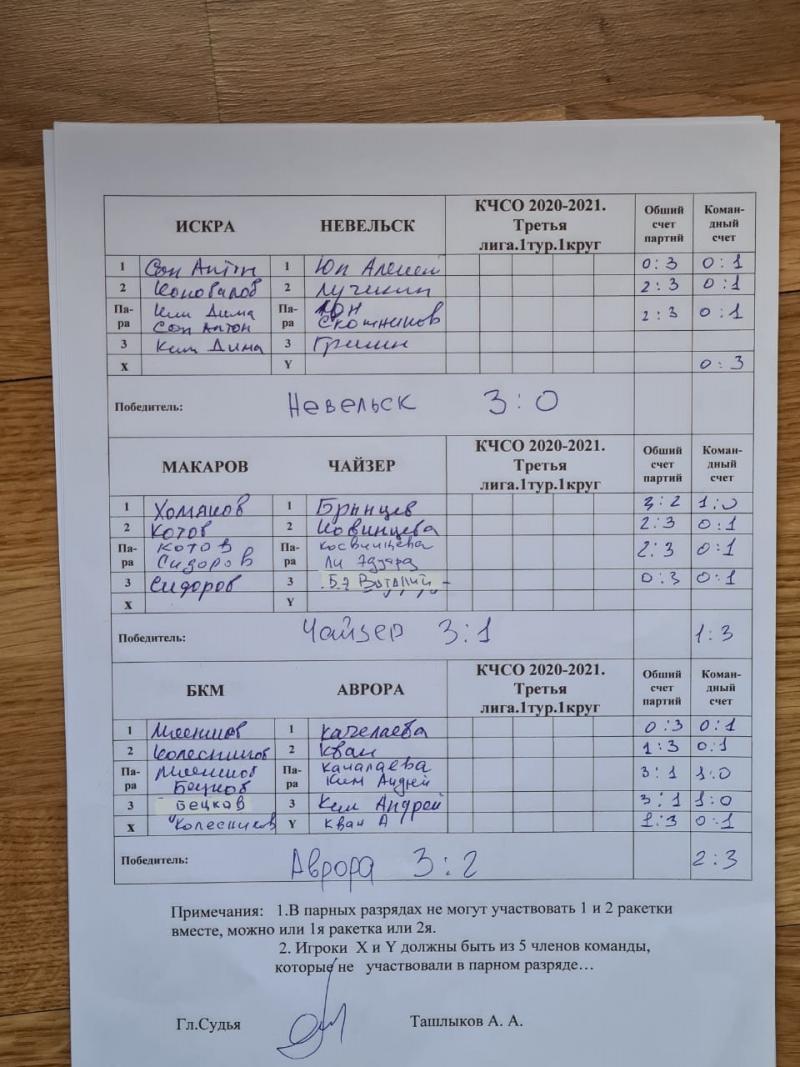 ИСКРА НЕВЕЛЬСК КЧСО 2020-2021. Третья лига.1тур.1круг Обший счет партий Коман-дный счет
1 Сон Антон 1 Юн Алексей 0:3 0:1
2 Коновалов 2 Лучкин 2:3 0:1
Па-ра Ким Дима Па-ра Юн 2:3 0:1
Сон Антон Скотников
3 Ким Дима 3 Гришин
X Y 0:3
Победитель: Невельск 3:0
МАКАРОВ ЧАЙЗЕР КЧСО 2020-2021. Третья лига.1тур.1круг Обший счет партий Коман-дный счет
1 Хомяков 1 Брынцев 3:2 1:0
2 Котов 2 2:3 0:1
Па-ра Котов Па-ра 2:3 0:1
Сидоров Ли Эдуард
3 Сидоров 3 Виталий 0:3 0:1
X Y
Победитель: Чайзер 3:1 1:3
БКМ АВРОРА КЧСО 2020-2021. Третья лига.1тур.1круг Обший счет партий Коман-дный счет
1 1 Качелаева 0:3 0:1
2 Колесников 2 Кван 1:3 0:1
Па-ра Па-ра Качалаева 3:1 1:0
Бецков Ким Андрей
3 Бецков 3 Ким Андрей 3:1 1:0
X Колесников Y Кван А 1:3 0:1
Победитель: Аврора 3:2 2:3
Примечания: 1.В парных разрядах не могут участвовать 1 и 2 ракетки
вместе, можно или 1я ракетка или 2я.
2. Игроки X и Y должны быть из 5 членов команды,
которые не участвовали в парном разряде…
Гл.Судья Ташлыков А. А.